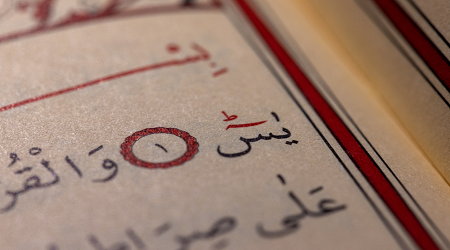 يٰسٓ ١ وَالْقُرْ
عَلٰى صِرَاطٍ